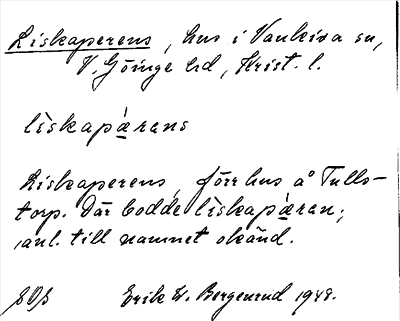 Liskaperens, hus i Vankiva sn,
V. Göinge hd, Krist. l.
lìskapǽrans
Liskaperens, förr hus å Tulls-
torp. Där bodde lìskapǽran;
anl. till namnet okänd.
SOS Erik W. Bergenrud 1948.